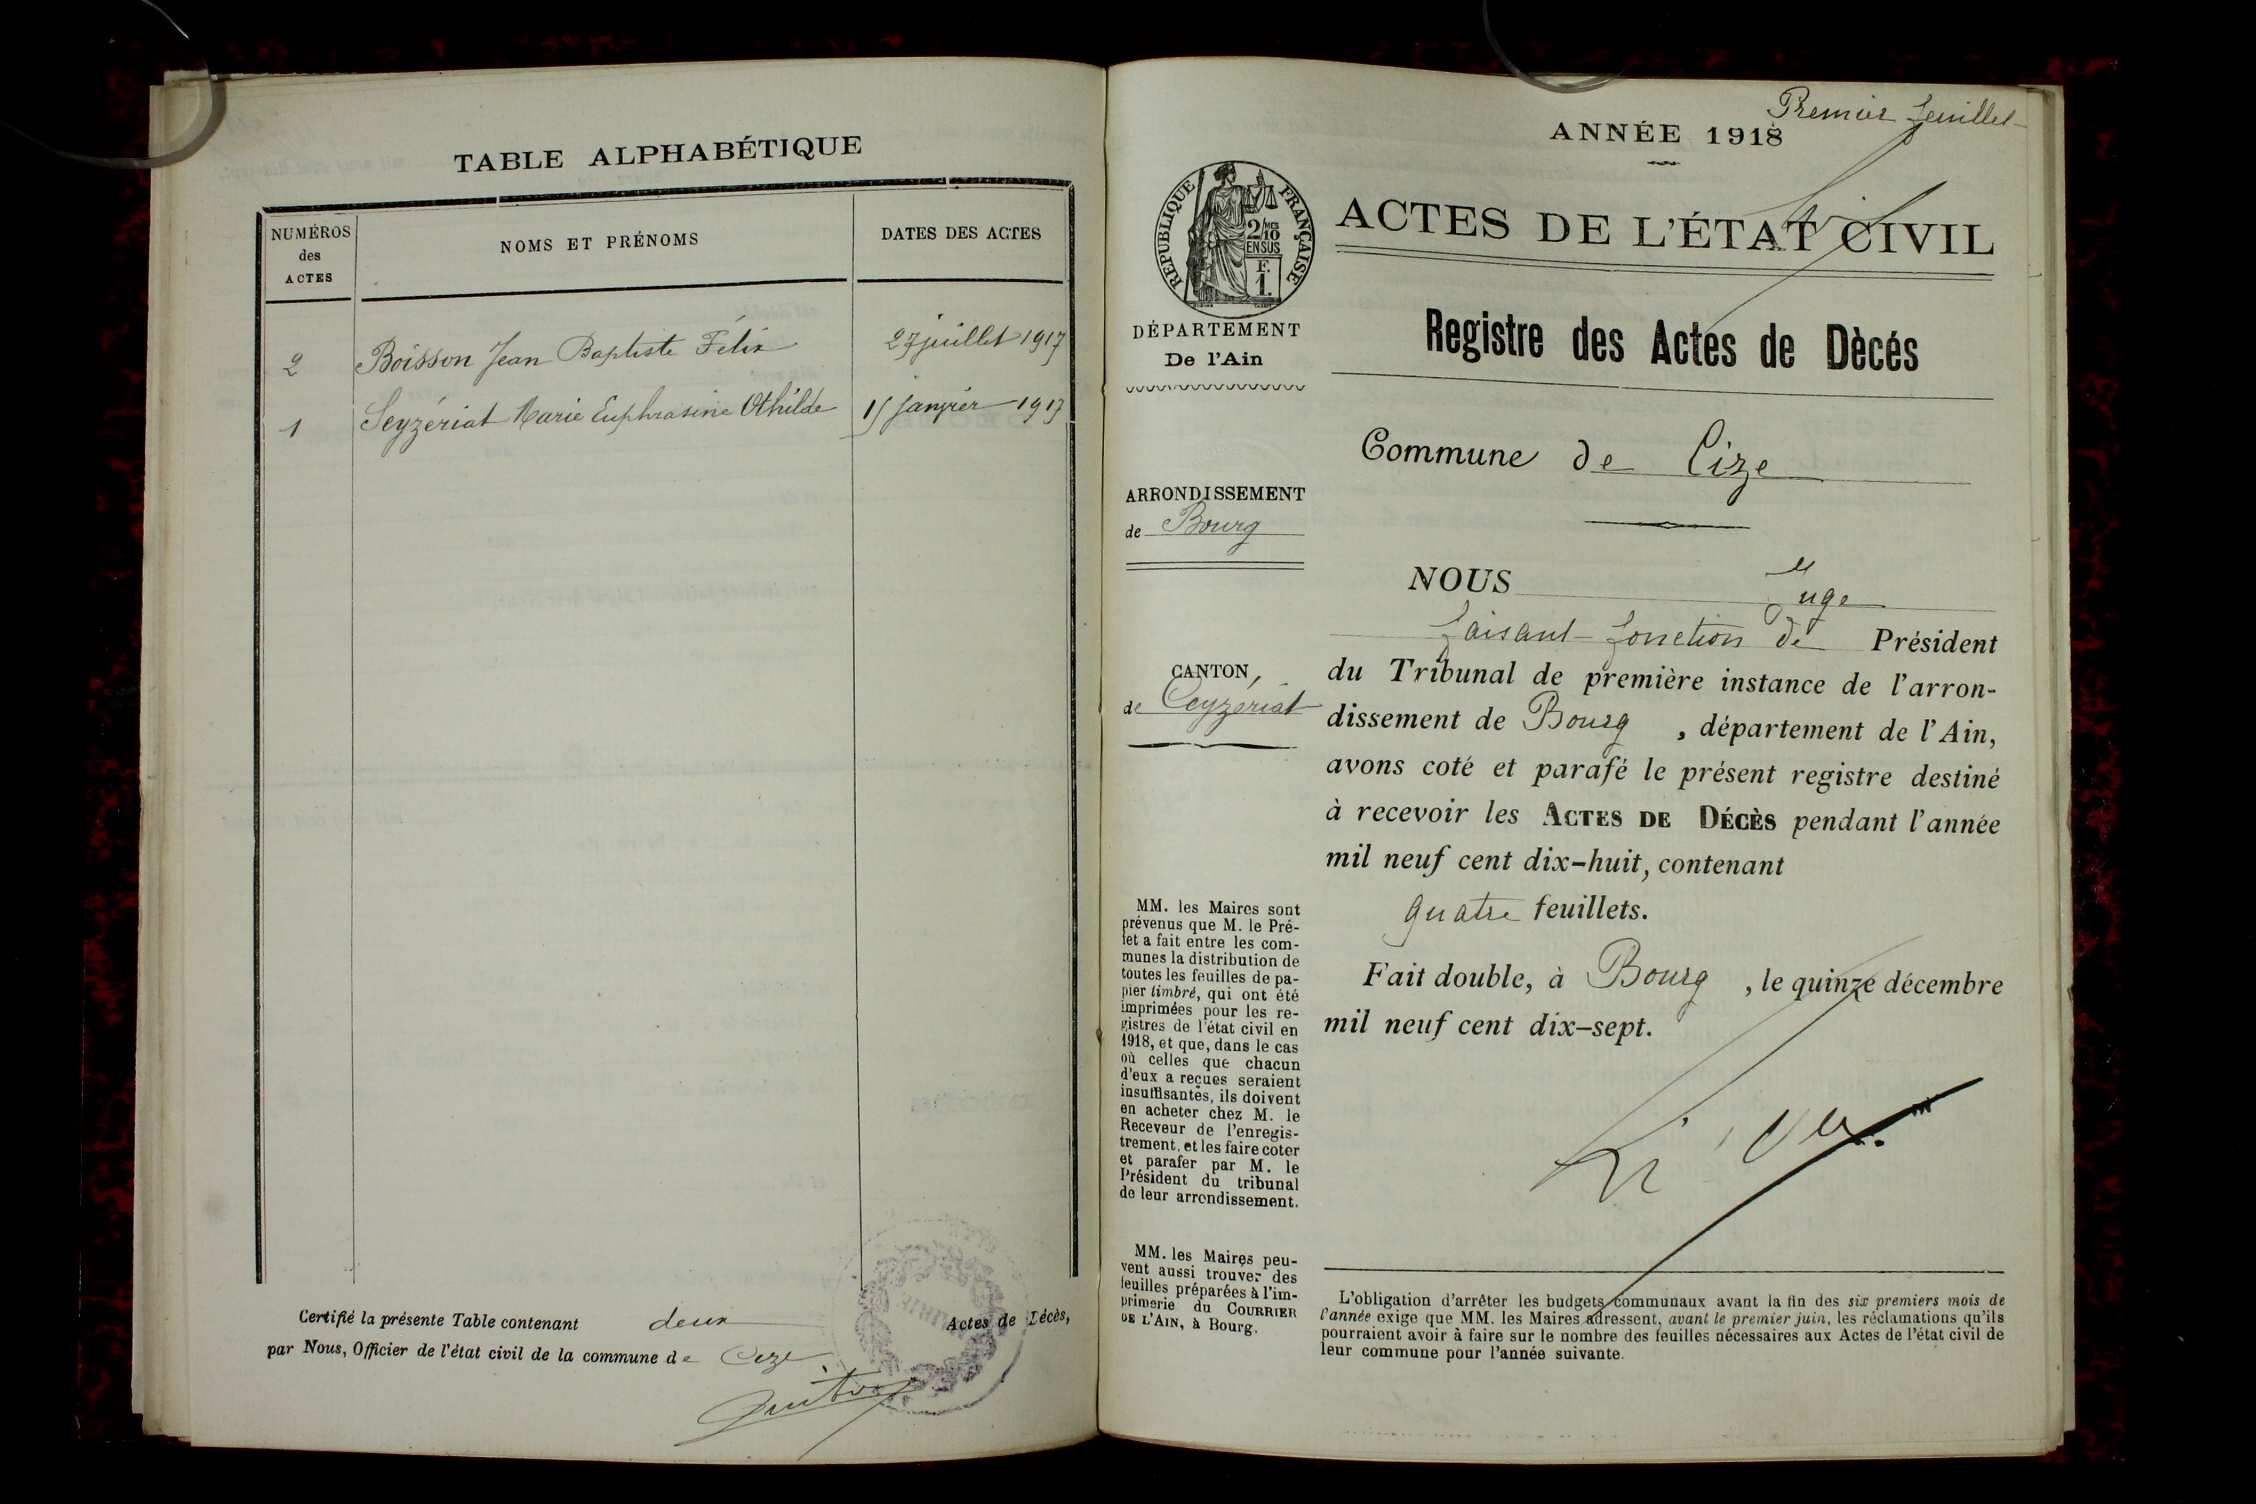 TABLE ALPHABÉTIQUE
NUMÉROS
des
ACTES
NOMS ET PRÉNOMS
DATES DES ACTES
2 Boisson Jean Baptiste Félix 27 juillet 1917
1 Seyzériat Marie Euphrasine Othilde 15 janvier 1917
Certifié la présente Table contenant deux Actes de Décès,
par Nous, Officier de l'état civil de la commune de Cize
Premier feuillet
ANNÉE 1918
RÉPUBLIQUE FRANÇAISE
2/10 MES
EN SUS
F.
1.
DÉPARTEMENT
De l'Ain
ARRONDISSEMENT
de Bourg
CANTON
de Ceyzériat
MM. les Maires sont
prévenus que M. le Pré-
fet a fait entre les com-
munes la distribution de
toutes les feuilles de pa-
pier timbré, qui ont été
imprimées pour les re-
gistres de l'état civil en
1918, et que, dans le cas
où celles que chacun
d'eux a reçues seraient
insuffisantes, ils doivent
en acheter chez M. le
Receveur de l'enregis-
trement, et les faire coter
et parafer par M. le
Président du tribunal
de leur arrondissement.
MM. les Maires peu-
vent aussi trouver des
feuilles préparées à l'im-
primerie du COURRIER
DE L'AIN, à Bourg.
ACTES DE L'ÉTAT CIVIL
Registre des Actes de Dècés
Commune de Cize
NOUS Juge
faisant fonction de Président
du Tribunal de première instance de l'arron-
dissement de Bourg, département de l'Ain,
avons coté et parafé le présent registre destiné
à recevoir les ACTES DE DÉCÈS pendant l'année
mil neuf cent dix-huit, contenant
quatre feuillets.
Fait double, à Bourg, le quinze décembre
mil neuf cent dix-sept.
L'obligation d'arrêter les budgets communaux avant la fin des six premiers mois de
l'année exige que MM. les Maires adressent, avant le premier juin, les réclamations qu'ils
pourraient avoir à faire sur le nombre des feuilles nécessaires aux Actes de l'état civil de
leur commune pour l'année suivante.